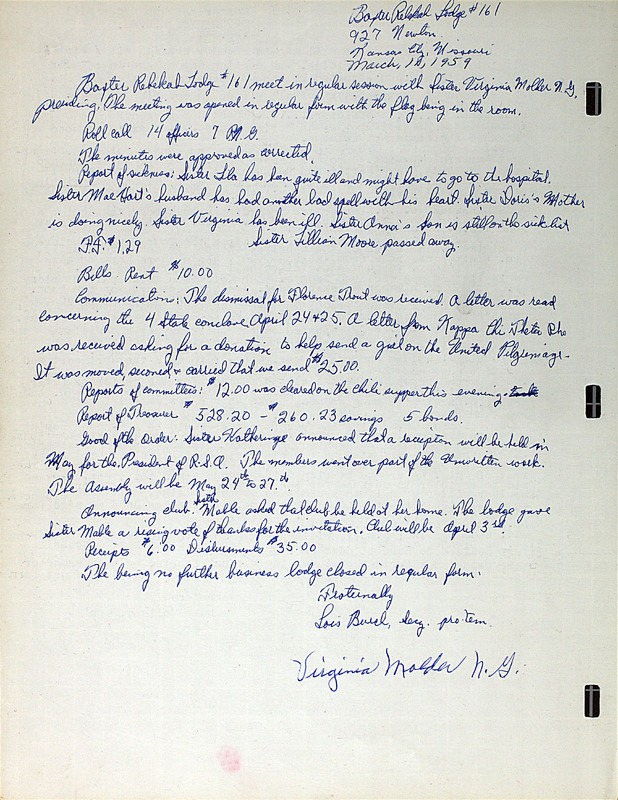 Baxter Rebekah Lodge #161
927 Newton
Kansas City, Missouri
March, 12, 1959
Baxter Rebekah Lodge #161 meet in regular session with Sister Virginia Molder N.G.
presiding. The meeting was opened in regular form with the flag being in the room.
Roll call 14 officers 7 P.N.G.
The minutes were approved as corrected.
Report of sickness: Sister Ila has been quite ill and might have to go to the hospital.
Sister Mae Hart's husband has had another bad spell with his heart. Sister Doris's Mother
is doing nicely. Sister Virginia has been ill. Sister Anna's Son is still on the sick list
P.F. $1.29 Sister Lillian Moore passed away.
Bills. Rent $10.00
Communication: The dismissal for Florence Trout was received. A letter was read
concerning the 4 State conclave April 24 & 25. A letter from Kappa the Theta Rho
was received asking for a donation to help send a girl on the United Pilgrimage.
It was moved, second & carried that we send $25.00.
Reports of committies: $12.00 was cleared on the chili supper this evening
Report of Treasurer $528.20 - $260.23 savings 5 bonds.
Good of the Order: Sister Katheringe announced that a reception will be held in
May for the President of R.S.A. The members went over part of the Unwritten work.
The Assembly will be May 24th to 27.th
Announcing club: Sister Mable asked that club be held at her home. The lodge gave
Sister Mable a rising vote of thanks for the invitation. Club will be April 3rd.
Receipts $6.00 Disbursments $35.00
The being no further business lodge closed in regular form.
Fraternally
Lois Burch, Secy. pro tem.
Virginia Molder N.G.